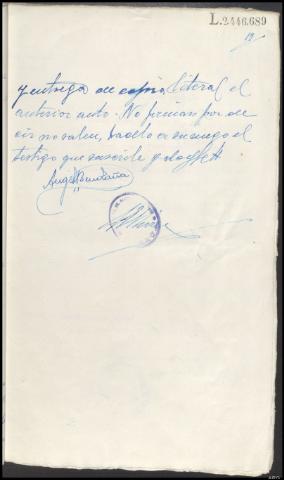 L.2446.689
y entrega de copia literal el
anterior auto. No firman por de
cir no saber, hacelo a su ruego el
testigo que suscribe y doy fé
Angel Quintana